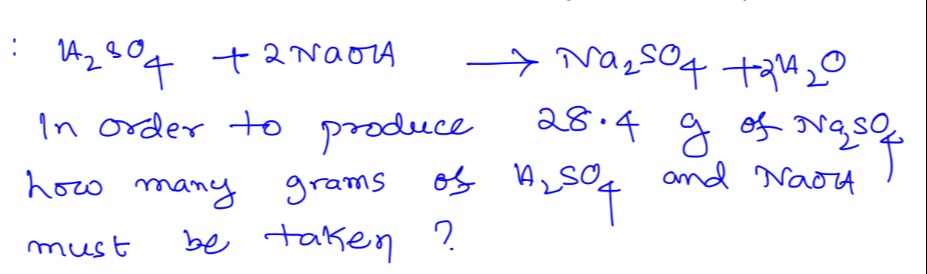 : H₂SO₄ + 2NaOH → Na₂SO₄ + 2H₂O
In order to produce 28.4 g of Na₂SO₄,
how many grams of H₂SO₄ and NaOH
must be taken ?